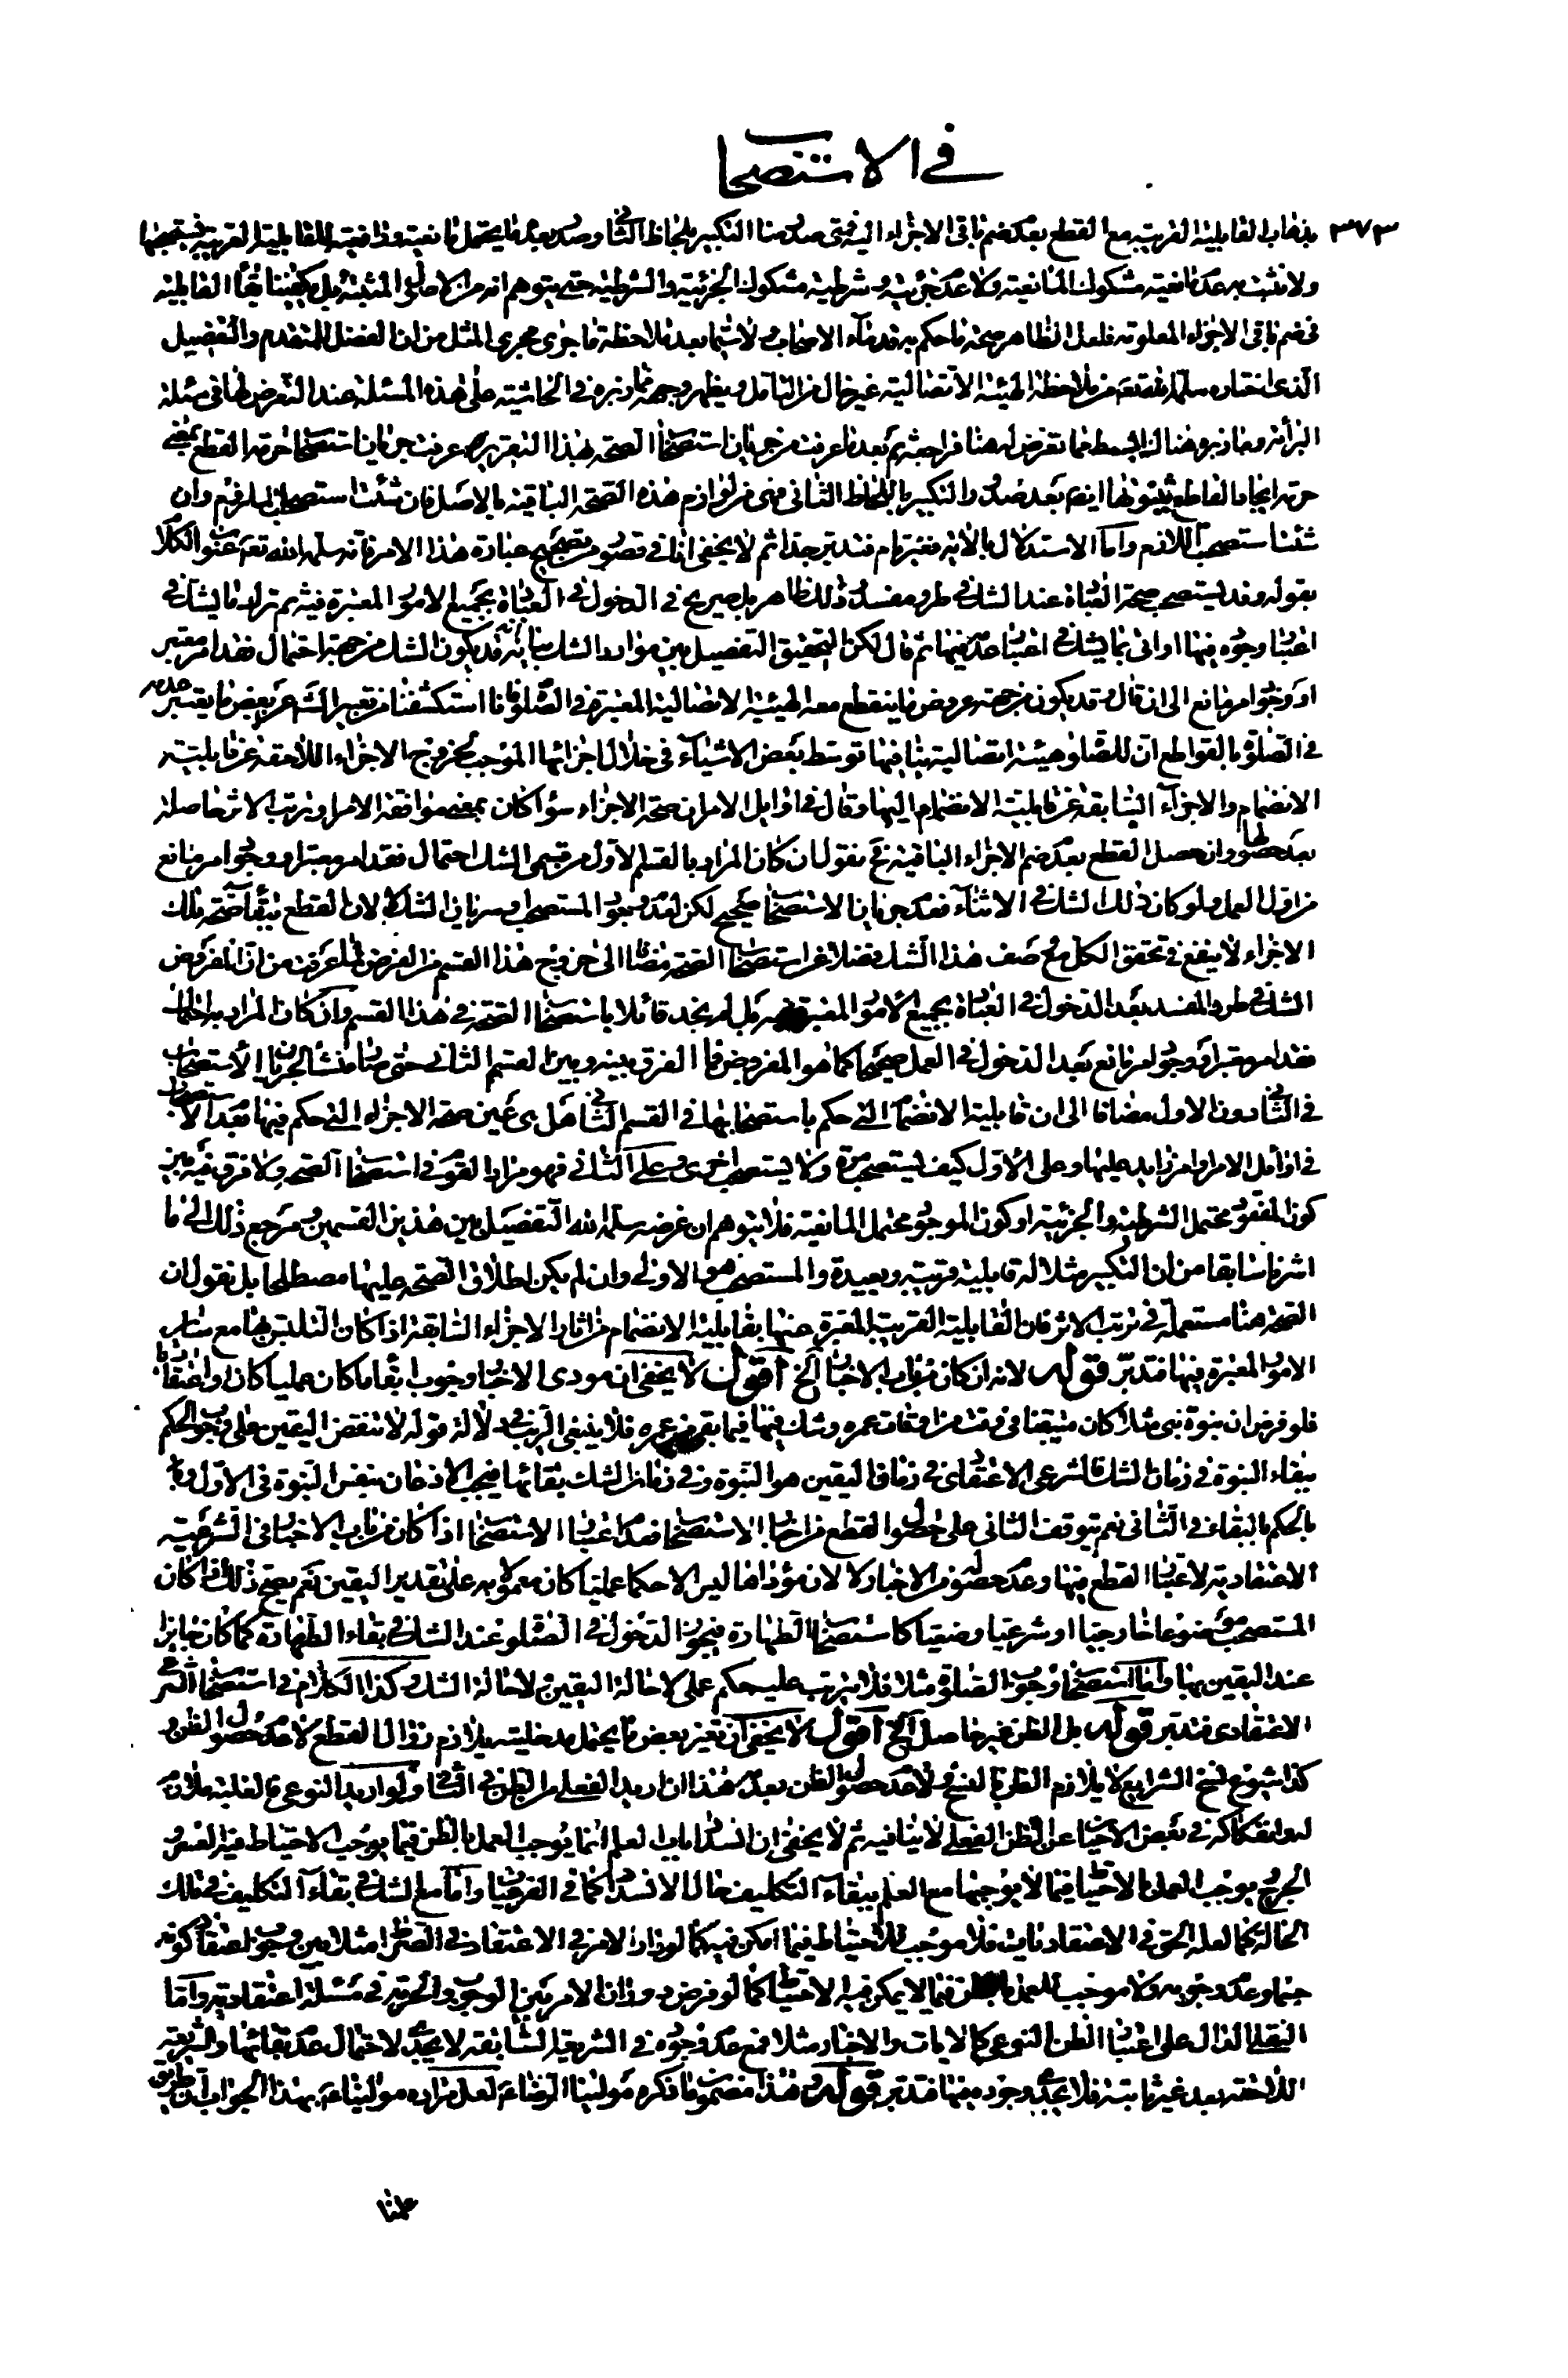 في الاستصحاب
٣٧٣
بذهاب القابلية القريبة مع القطع بعدم ضم باقي الاجزاء اليه فمتى صدر منا التكبير بلحاظ الثاني وصدر بعده ما يحتمل مانعيته ورافعيته للقابلية القريبة فنستصحبها
ولا نثبت به عدم مانعية مشكوك المانعية ولا عدم جزئية وشرطية مشكوك الجزئية والشرطية حتى يتوهم انه من الاصول المثبتة بل يكفينا بقاء القابلية
في ضم باقي الاجزاء المعلومة فلعل الظاهر صحة ما حكم به قدماء الاصحاب ولا سيما بعد ملاحظة ما جرى مجرى المثل من ان الفضل للمتقدم والتفصيل
الذي اختاره سلمه الله تعم من ملاحظة الهيئة الاتصالية غير خال من التامل ويظهر وجهه مما زبره في الحاشية على هذه المسئلة عند التعرض لها في مسئلة
البرائة وما زبره هنالك ابسط مما تعرض له هنا فراجعه ثم بعد ما عرفت من جريان استصحاب الصحة بهذا التقرير عرفت جريان استصحاب حرمة القطع بمعنى
حرمة ايجاد القاطع لثبوتها ايضا بعد صدور التكبير باللحاظ الثاني فهي من لوازم هذه الصحة الباقية بالاصل فان شئت استصحب الملزوم وان
شئت استصحب اللازم واما الاستدلال بالاية فغير تام فتدبر جدا ثم لا يخفى انا في قصور من تصحيح عبارة هذا الامر فانه سلمه الله تعم عنون الكلام
بقوله وقد يستصحب صحة العبادة عند الشك في طرو مفسد وذلك ظاهر بل صريح في الدخول في العبادة بجميع الامور المعتبرة فيه ثم تراه ما يشك في
اعتبار وجوده فيها او اتى بما يشك في اعتبار عدمه فيها ثم قال لكن التحقيق التفصيل بين موارد الشك بيانه انه قد يكون الشك من جهة احتمال فقد امر معتبر
او وجود امر مانع الى ان قال وقد يكون من جهة عروض ما ينقطع معه الهيئة الاتصالية المعتبرة في الصلوة فانا استكشفنا من تعبير الشارع عن بعض ما يعتبر عدمه
في الصلوة بالقواطع ان للصلوة هيئة اتصالية ينافيها توسط بعض الاشياء في خلال اجزائها الموجب لخروج الاجزاء اللاحقة عن قابلية
الانضمام والاجزاء السابقة عن قابلية الانضمام اليها وقال في اوايل الامر ان صحة الاجزاء سواء كان بمعنى موافقة الامر او ترتب الاثر حاصلة
بعد حصولها وان حصل القطع بعدم ضم الاجزاء الباقية فح نقول ان كان المراد بالقسم الاول من قسمي الشك احتمال فقد امر معتبر او وجود امر مانع
من اول العمل ولو كان ذلك الشك في الاثناء فعدم جريان الاستصحاب صحيح لكن لعدم وجود المستصحب وسريان الشك لا لان القطع ببقاء صحة تلك
الاجزاء لا ينفع في تحقق الكل مع وصف هذا الشك فضلا عن استصحاب الصحة مضافا الى خروج هذا القسم من الفرض لما عرفت من ان المفروض
الشك في طرو المفسد بعد الدخول في العبادة بجميع الامور المعتبرة فيه بل لم نجد قائلا باستصحاب الصحة في هذا القسم وان كان المراد به احتمال
فقد امر معتبر او وجود امر مانع بعد الدخول في العمل صحيحا كما هو المفروض فما الفرق بينه وبين القسم الثاني حتى صار منشأ لجريان الاستصحاب
في الثاني دون الاول مضافا الى ان قابلية الانضمام التي حكم باستصحابها في القسم الثاني هل هي عين صحة الاجزاء التي حكم فيها بعدم الاستصحاب
في اوائل الامر او امر زايد عليها وعلى الاول كيف يستصحب مرة ولا يستصحب اخرى وعلى الثاني فهو مراد القوم في استصحاب الصحة ولا فرق فيه بين
كون المفقود محتمل الشرطية والجزئية او كون الموجود محتمل المانعية فلا يتوهم ان غرضه سلمه الله التفصيل بين هذين القسمين ومرجع ذلك الى ما
اشرنا سابقا من ان التكبير مثلا له قابلية قريبة وبعيدة والمستصحب هو الاولى وان لم يكن اطلاق الصحة عليها مصطلحا بل نقول ان
الصحة هنا مستعملة في ترتب الاثر فان القابلية القريبة المعتبرة عنها بقابلية الانضمام من اثار الاجزاء السابقة اذا كان التلبس بها مع ساير
الامور المعتبرة فيها فتدبر قوله لانه ان كان من باب الاخبار الخ اقول لا يخفى ان مودى الاخبار وجوب ابقاء ما كان عمليا كان او اعتقاديا
فلو فرض ان نبوة نبي مثلا كان متيقنا في وقت من اوقات عمره وشك فيها فيما بقي من عمره فلا ينبغي الريب في دلالة قوله لا تنقض اليقين على وجوب الحكم
ببقاء النبوة في زمان الشك فالشرعي الاعتقادي في زمان اليقين هو النبوة وفي زمان الشك بقائها فيجب الاذعان بنفس النبوة في الاول و
بالحكم بالبقاء في الثاني نعم يتوقف الثاني على حصول القطع من اخبار الاستصحاب فعدم اعتبار الاستصحاب اذا كان من باب الاخبار في الشرعية
الاعتقادية لاعتبار القطع فيها وعدم حصوله من الاخبار لا لان مؤداها ليس الا حكما عمليا كان معمولا به على تقدير اليقين نعم يصح ذلك اذا كان
المستصحب موضوعا خارجيا او شرعيا وضعيا كاستصحاب الطهارة فيجوز الدخول في الصلوة عند الشك في بقاء الطهارة كما كان جايزا
عند اليقين بها واما استصحاب وجوب الصلوة مثلا فلا يترتب عليه حكم عملي لا حالة اليقين ولا حالة الشك وكذا الكلام في استصحاب الشرعي
الاعتقادي فتدبر قوله بل الظن غير حاصل الخ اقول لا يخفى ان تغير بعض ما يحتمل مدخليته يلازم زوال القطع لا عدم حصول الظن و
كذا شيوع نسخ الشرايع لا يلازم الظن بالنسخ ولا عدم حصول الظن بعدمه هذا ان اريد الفعلي من الظن في الثاني ولو اريد النوعي فالغلبة ملازمة
له وانفكاكه في بعض الاحيان عن الظن الفعلي لا ينافيه ثم لا يخفى ان انسداد باب العلم انما يوجب العمل بالظن فيما يوجب الاحتياط فيه العسر و
الحرج ويوجب العمل بالاحتياط فيما لا يوجبها مع العلم ببقاء التكليف حال الانسداد كما في الفرعيات واما مع الشك في بقاء التكليف في تلك
الحالة كما لعله الحق في الاعتقاديات فلا موجب للاحتياط فيما امكن فيه كما لو دار الامر في الاعتقاد في الصراط مثلا بين وجوب اعتقاد كونه
جسما وعدم وجوبه ولا موجب للعمل بالظن فيما لا يمكن فيه الاحتياط كما لو فرض دوران الامر بين الوجوب والحرمة في مسئلة اعتقادية واما
النقلي الدال على اعتبار الظن النوعي كالايات والاخبار مثلا فمع عدم وجوده في الشريعة السابقة لا يجدي لاحتمال عدم بقائها والشريعة
اللاحقة بعد غير ثابتة فلا يجدي وجوده فيها فتدبر قوله وهذا مضمون ما ذكره مولينا الرضا ع لعل مراده مولينا ع بهذا الجواب ان طريق
علمنا